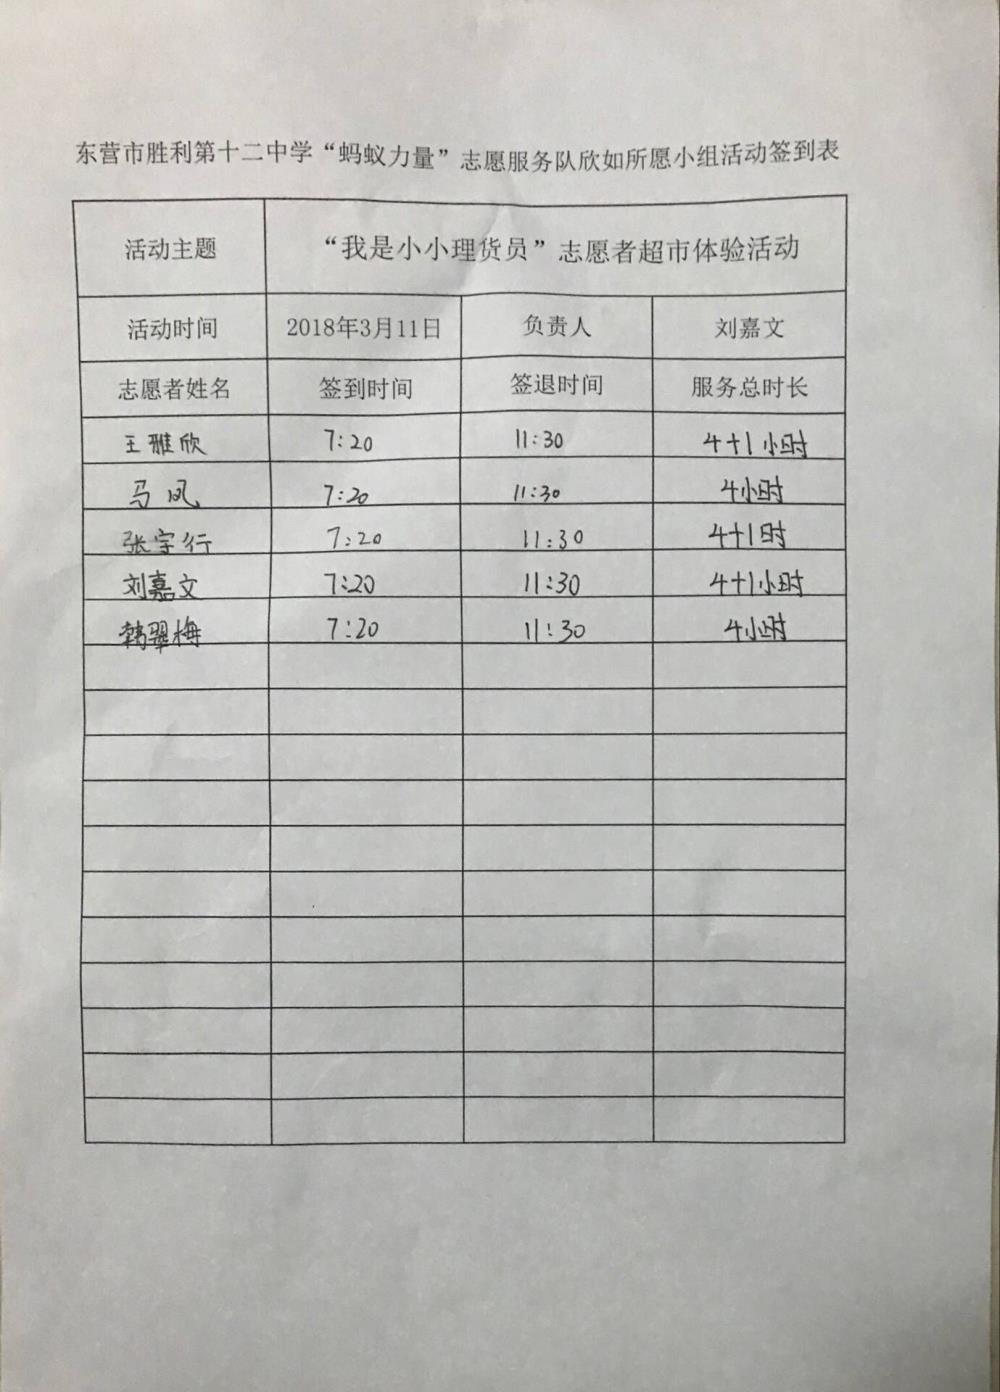 东营市胜利第十二中学“蚂蚁力量”志愿服务队欣如所愿小组活动签到表
活动主题 “我是小小理货员”志愿者超市体验活动
活动时间 2018年3月11日 负责人 刘嘉文
志愿者姓名 签到时间 签退时间 服务总时长
王雅欣 7:20 11:30 4+1小时
马凤 7:20 11:30 4小时
张宇行 7:20 11:30 4+1时
刘嘉文 7:20 11:30 4+1小时
韩翠梅 7:20 11:30 4小时